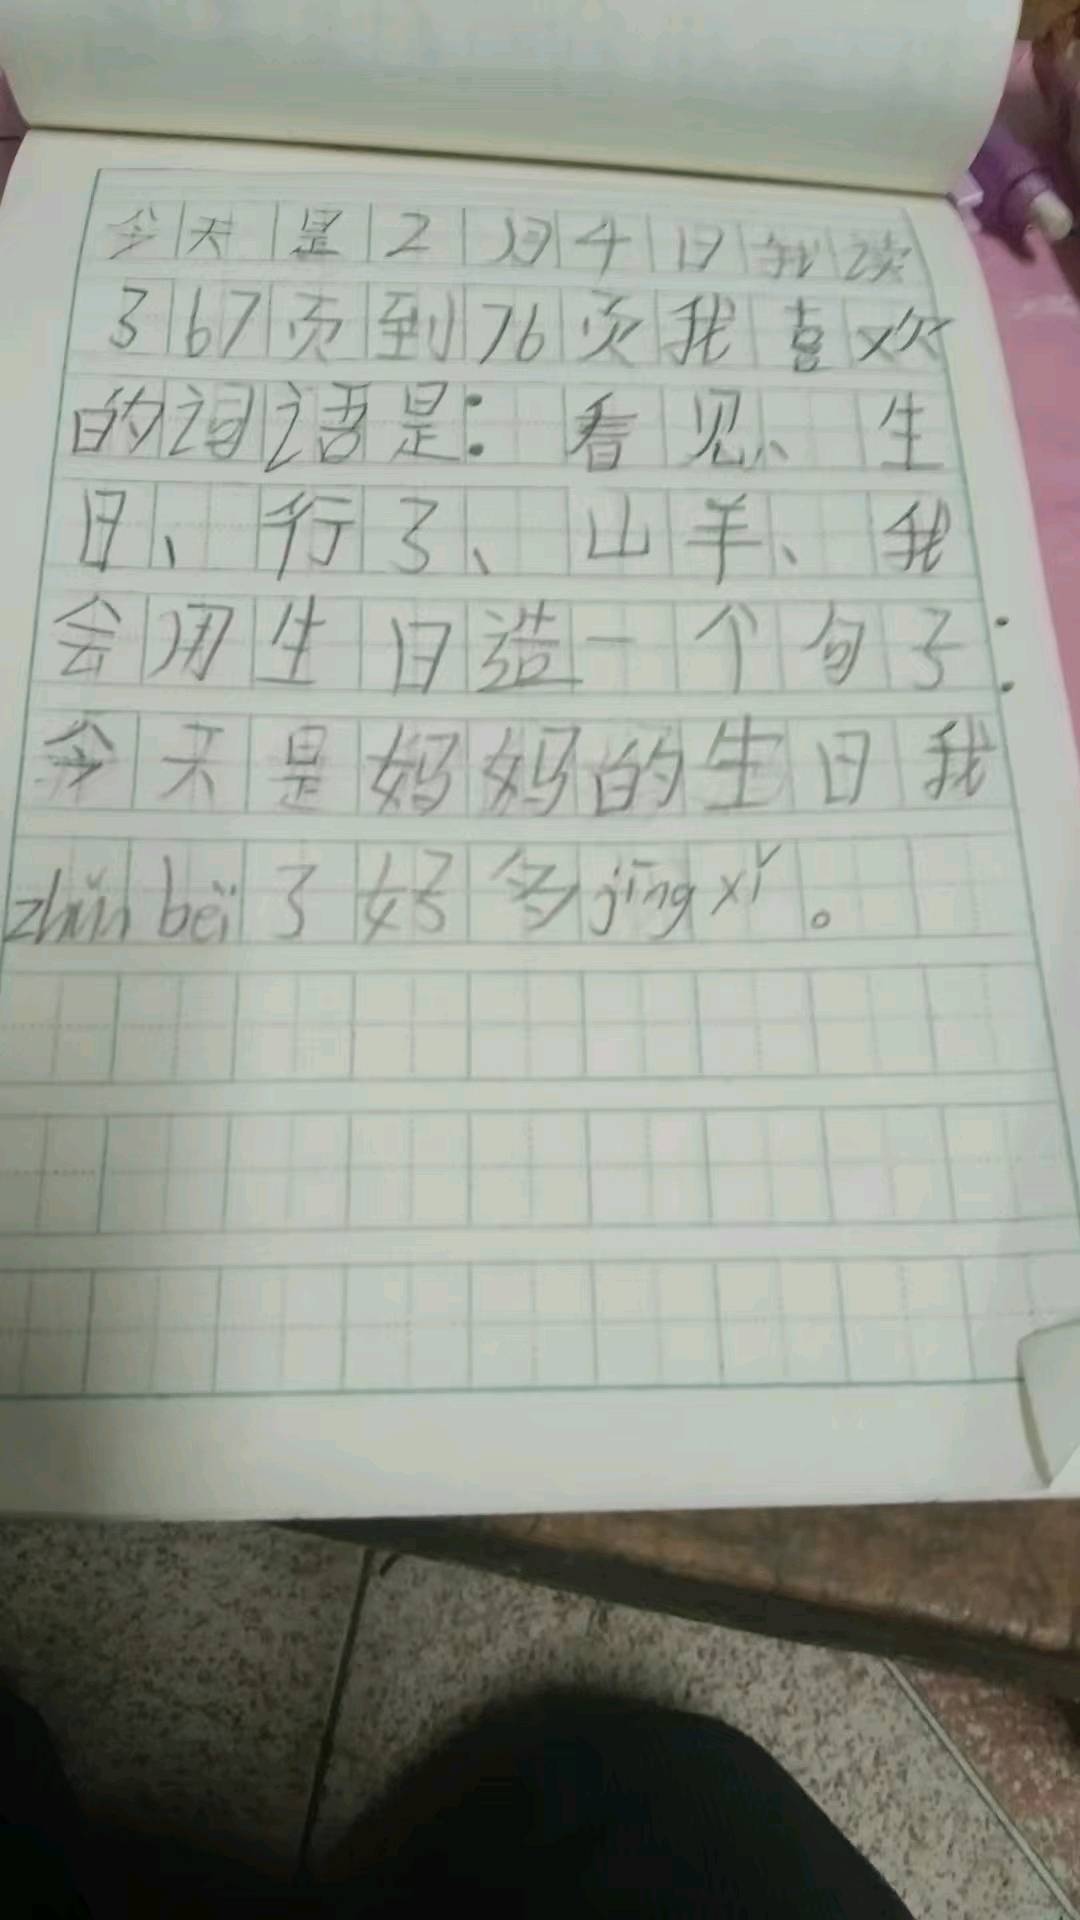 今天是2月4日我读
了67页到76页我喜欢
的词语是：看见、生
日、行了、山羊、我
会用生日造一个句子：
今天是妈妈的生日我
zhǔn bèi了好多jīng xǐ。